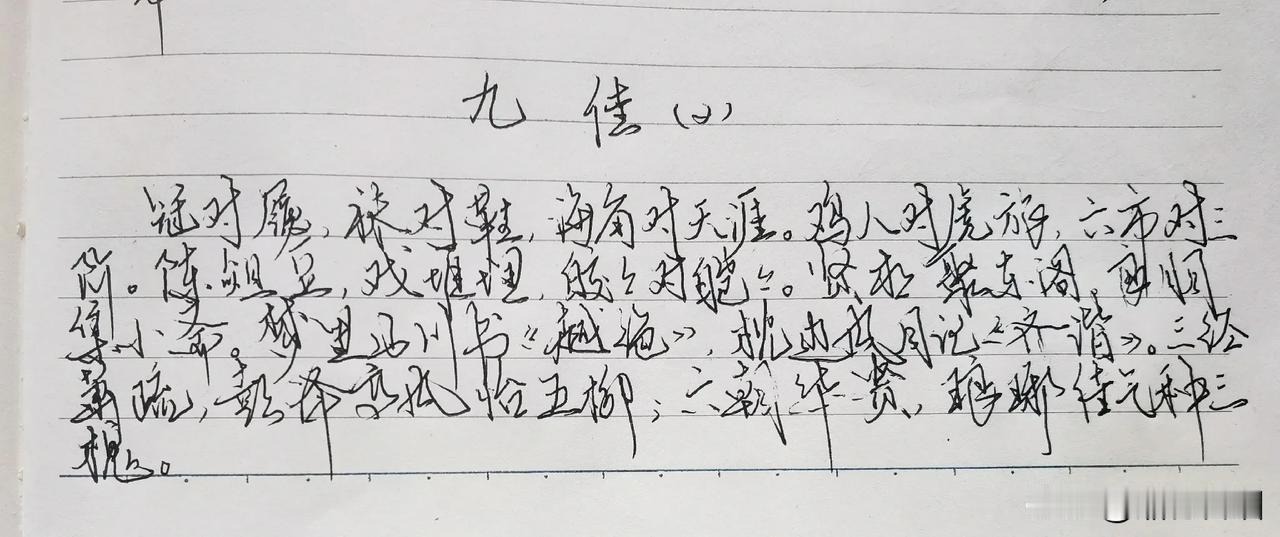 九佳(2)
冠对履,袜对鞋,海角对天涯。鸡人对虎旅,六市对三
阶。陈俎豆,戏堆埋,皎皎对皑皑。贤相聚东阁,良朋
集小斋。梦里山川书《越绝》,枕边风月记《齐谐》。三径
萧疏,彭泽高风怡五柳;六朝华贵,琅琊佳气种三
槐。